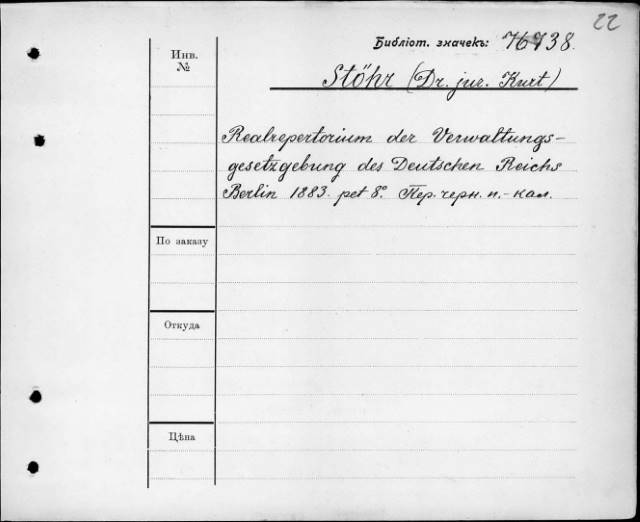 22
Библіот. значекъ: 76738.
Инв.
№
Stöhr (Dr. jur. Kurt)
Realrepertorium der Verwaltungs-
gesetzgebung des Deutschen Reichs
Berlin 1883. pet 8º. Пер. черн. п.-кал.
По заказу
Откуда
Цѣна